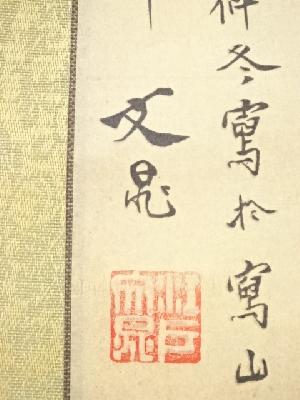 仲冬寫於寫山
文晁
文晁之印